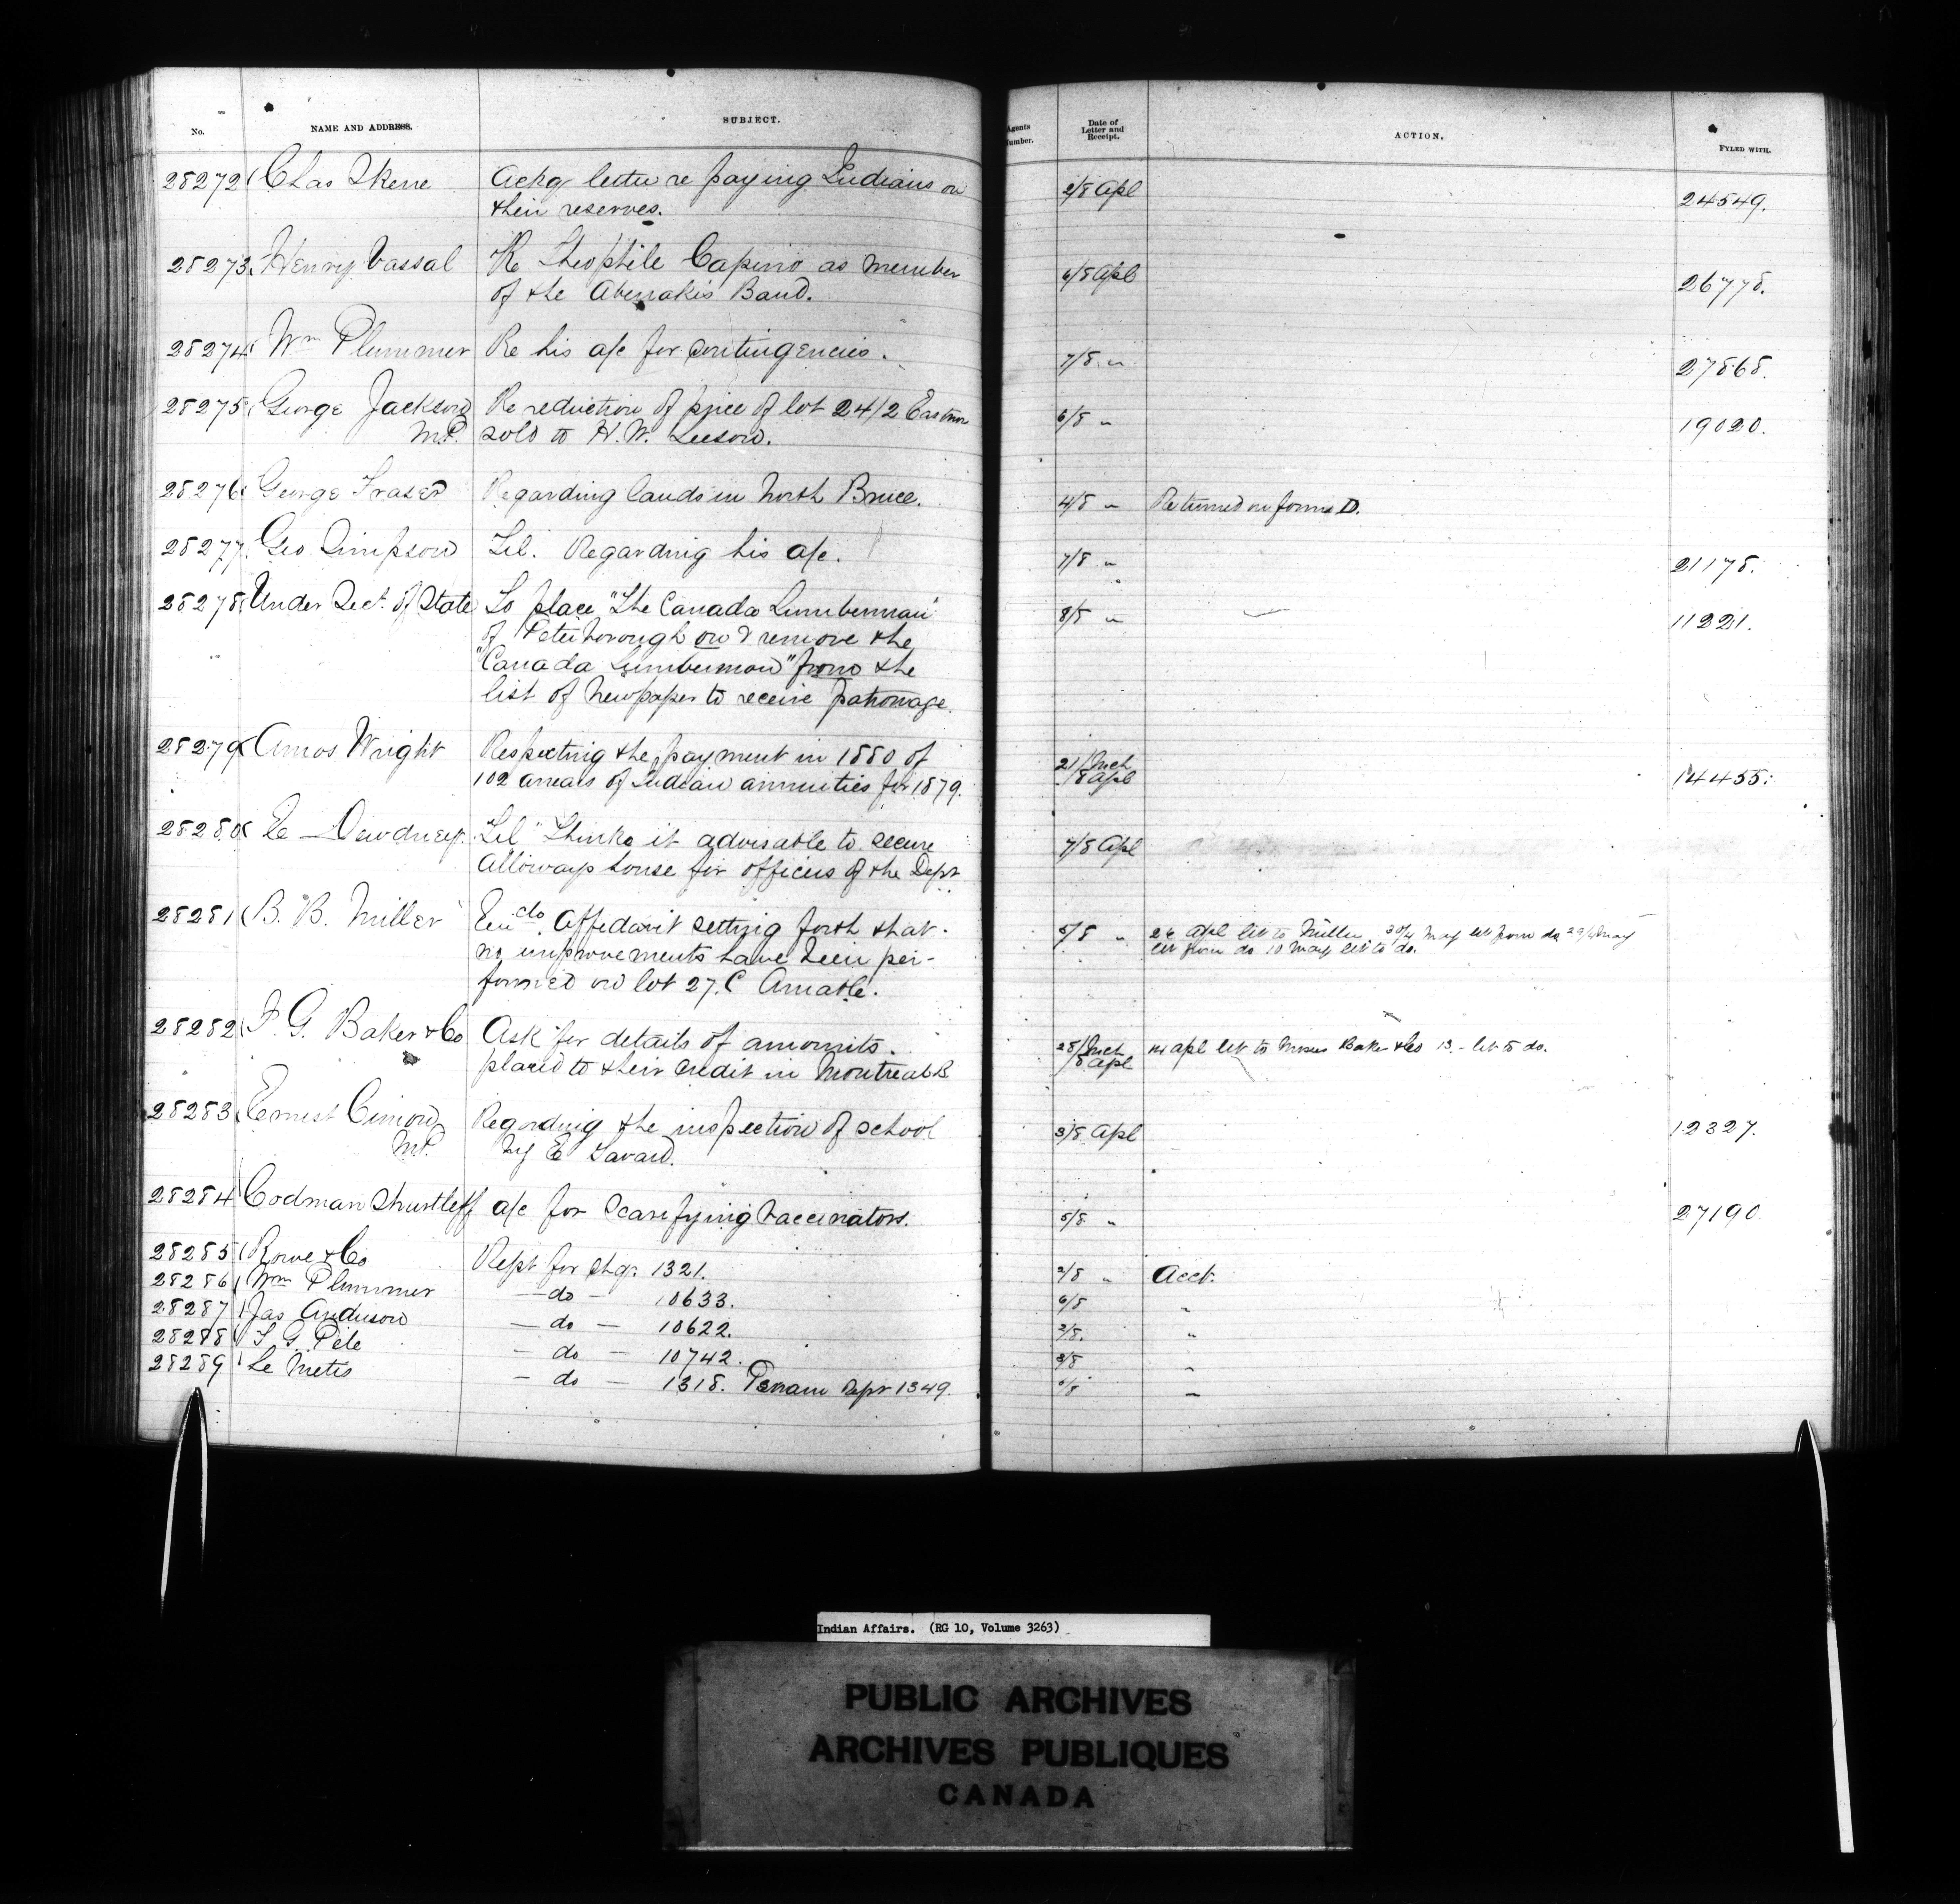 No. NAME AND ADDRESS. SUBJECT. Agents Number. Date of Letter and Receipt. ACTION. FYLED WITH.
28272 Chas Skene Ackg letter re paying Indians on 2/8 Apl 24549.
their reserves.
28273 Henry Vassal Re Theophile Capino as member 6/8 Apl 26778.
of the Abenakis Band.
28274 Wm Plummer Re his a/c for contingencies. 7/8 " 27868.
28275 George Jackson Re reduction of price of lot 24/2 Eastnor 6/8 " 19020.
M.P. sold to H.W. Leeson.
28276 George Fraser Regarding lands in North Bruce. 4/8 " Returned on form D.
28277 Geo. Simpson Tel. Regarding his a/c. 7/8 " 21178.
28278 Under Sect. of State To place "The Canada Lumberman" 8/8 " 11221.
of Peterborough on & remove the
"Canada Lumberman" from the
list of Newspaper to receive patronage.
28279 Amos Wright Respecting the payment in 1880 of 21/Mch 14455.
102 arrears of Indian annuities for 1879. /8 Apl
28280 E Dewdney "Tel" Thinks it advisable to secure 7/8 Apl
Alloways house for officers of the Dept
28281 B. B. Miller Enc do Affidavit setting forth that 5/8 " 26 Apl let to Miller, May let from do 29/ May
no improvements have been per- let from do 10 May let to do.
formed on lot 27. C Amable.
28282 I. G. Baker & Co Ask for details of amounts 28/Mch 14 Apl let to Messrs Baker & Co 13 - let to do.
placed to their credit in Montreal B. /8 Apl
28283 Ernest Cimon Regarding the inspection of school 3/8 Apl 12327.
MP. by E Savard.
28284 Codman Shurtleff a/c for Scarifying Vaccinators. 5/8 " 27190
28285 Rowe & Co Rept for chq. 1321. 2/8 " Acct.
28286 Wm Plummer — do — 10633. 6/8 "
28287 Jas Anderson — do — 10622. 2/8. "
28288 T G Pele — do — 10742. 3/8 "
28289 Le Metis — do — 1318. Rept 1349. 5/8 "
Indian Affairs. (RG 10, Volume 3263)
PUBLIC ARCHIVES
ARCHIVES PUBLIQUES
CANADA